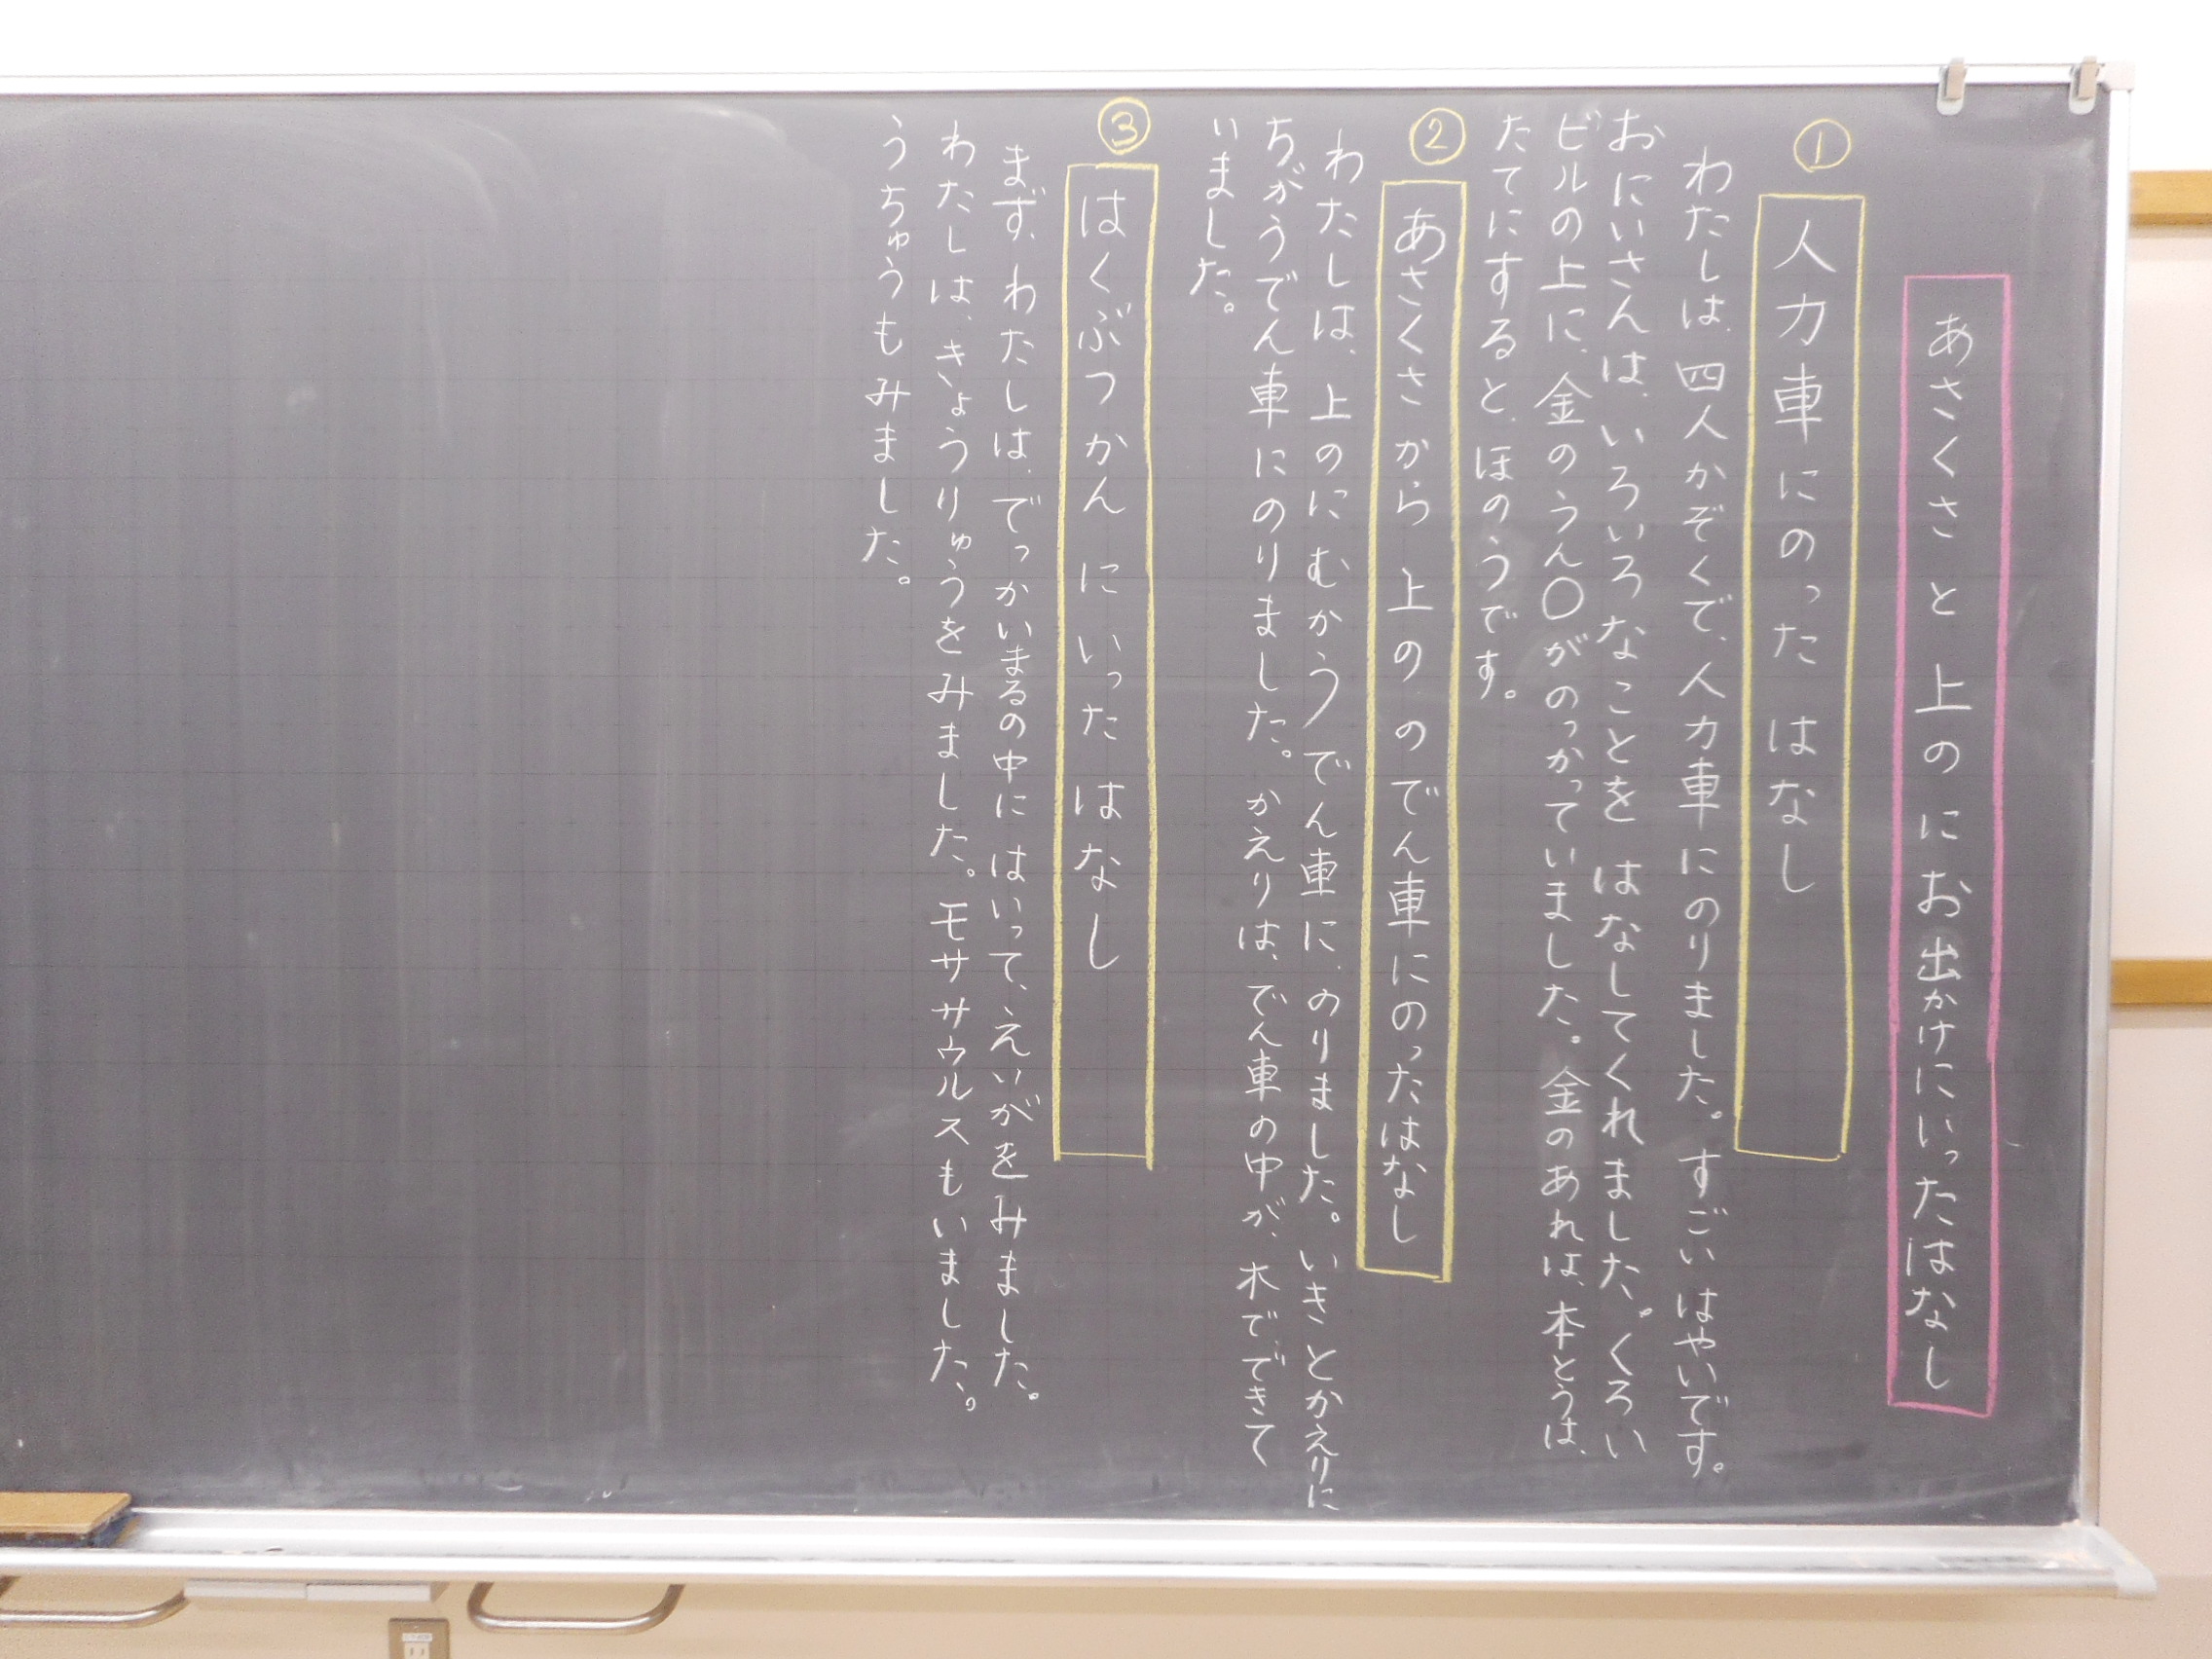 あさくさと上のにお出かけにいったはなし
①
人力車にのったはなし
わたしは、四人かぞくで、人力車にのりました。すごいはやいです。
おにいさんは、いろいろなことをはなしてくれました。くろい
ビルの上に、金のうん〇がのっかっていました。金のあれは、本とうは、
たてにすると、ほのうです。
②
あさくさから上のでん車にのったはなし
わたしは、上のにむかうでん車に、のりました。いきとかえりに
ちがうでん車にのりました。かえりは、でん車の中が、木でできて
いました。
③
はくぶつかんにいったはなし
まず、わたしは、でっかいまるの中にはいって、えいがをみました。
わたしは、きょうりゅうをみました。モササウルスもいました。
うちゅうもみました。